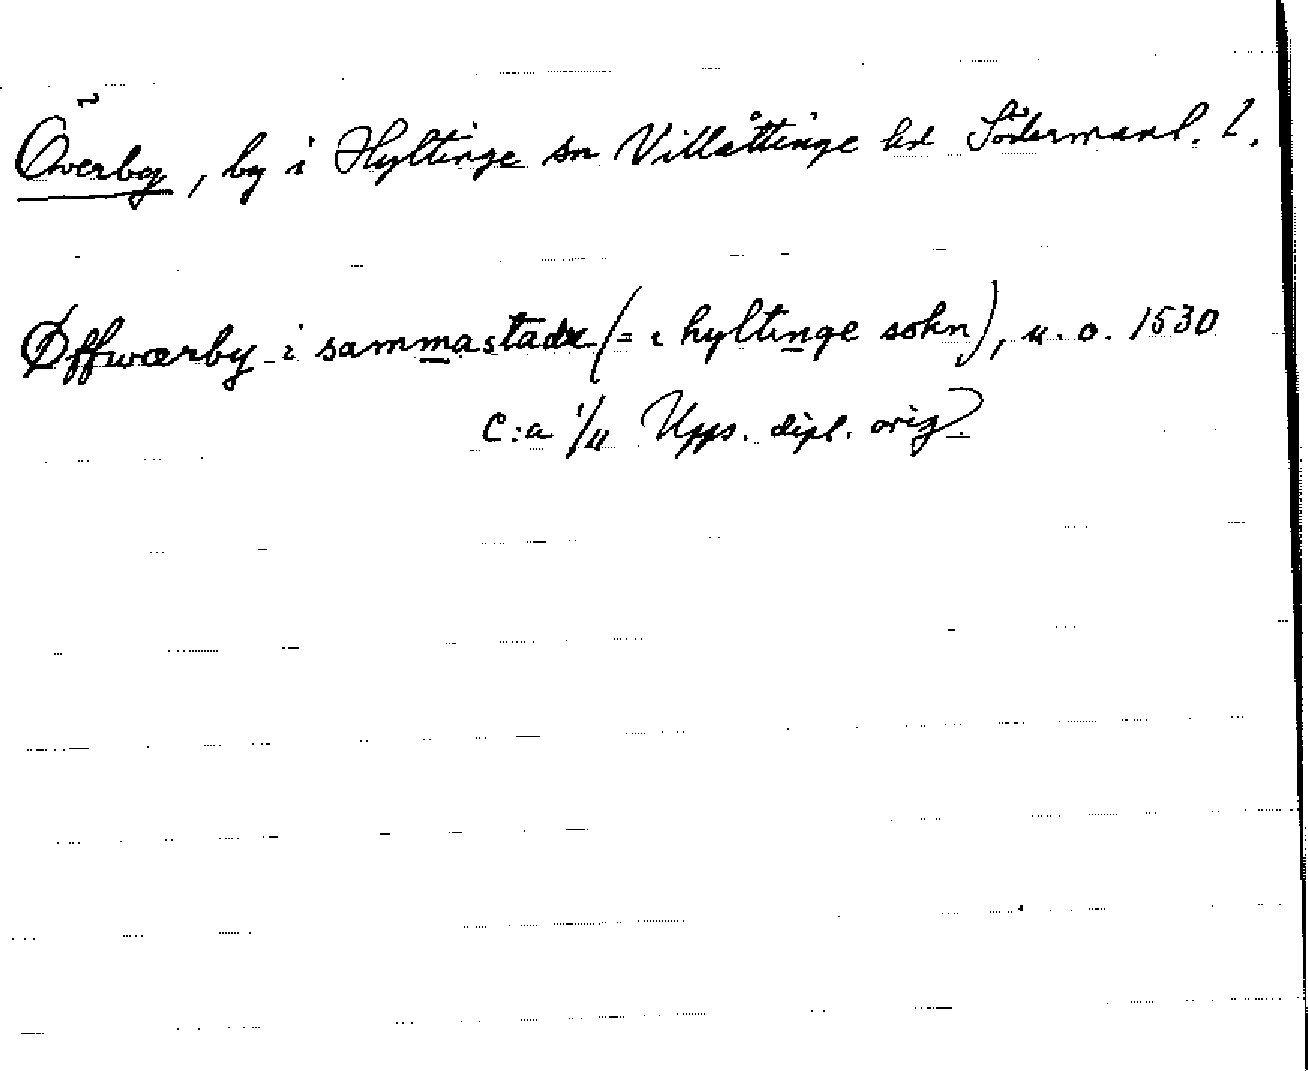 Överby, by i Hyltinge sn Villåttinge hd Södermanl. l.
Øffwærby i sammastadx (= i hyltinge sokn), u. o. 1530
c:a 1/11 Upps. dipl. orig.